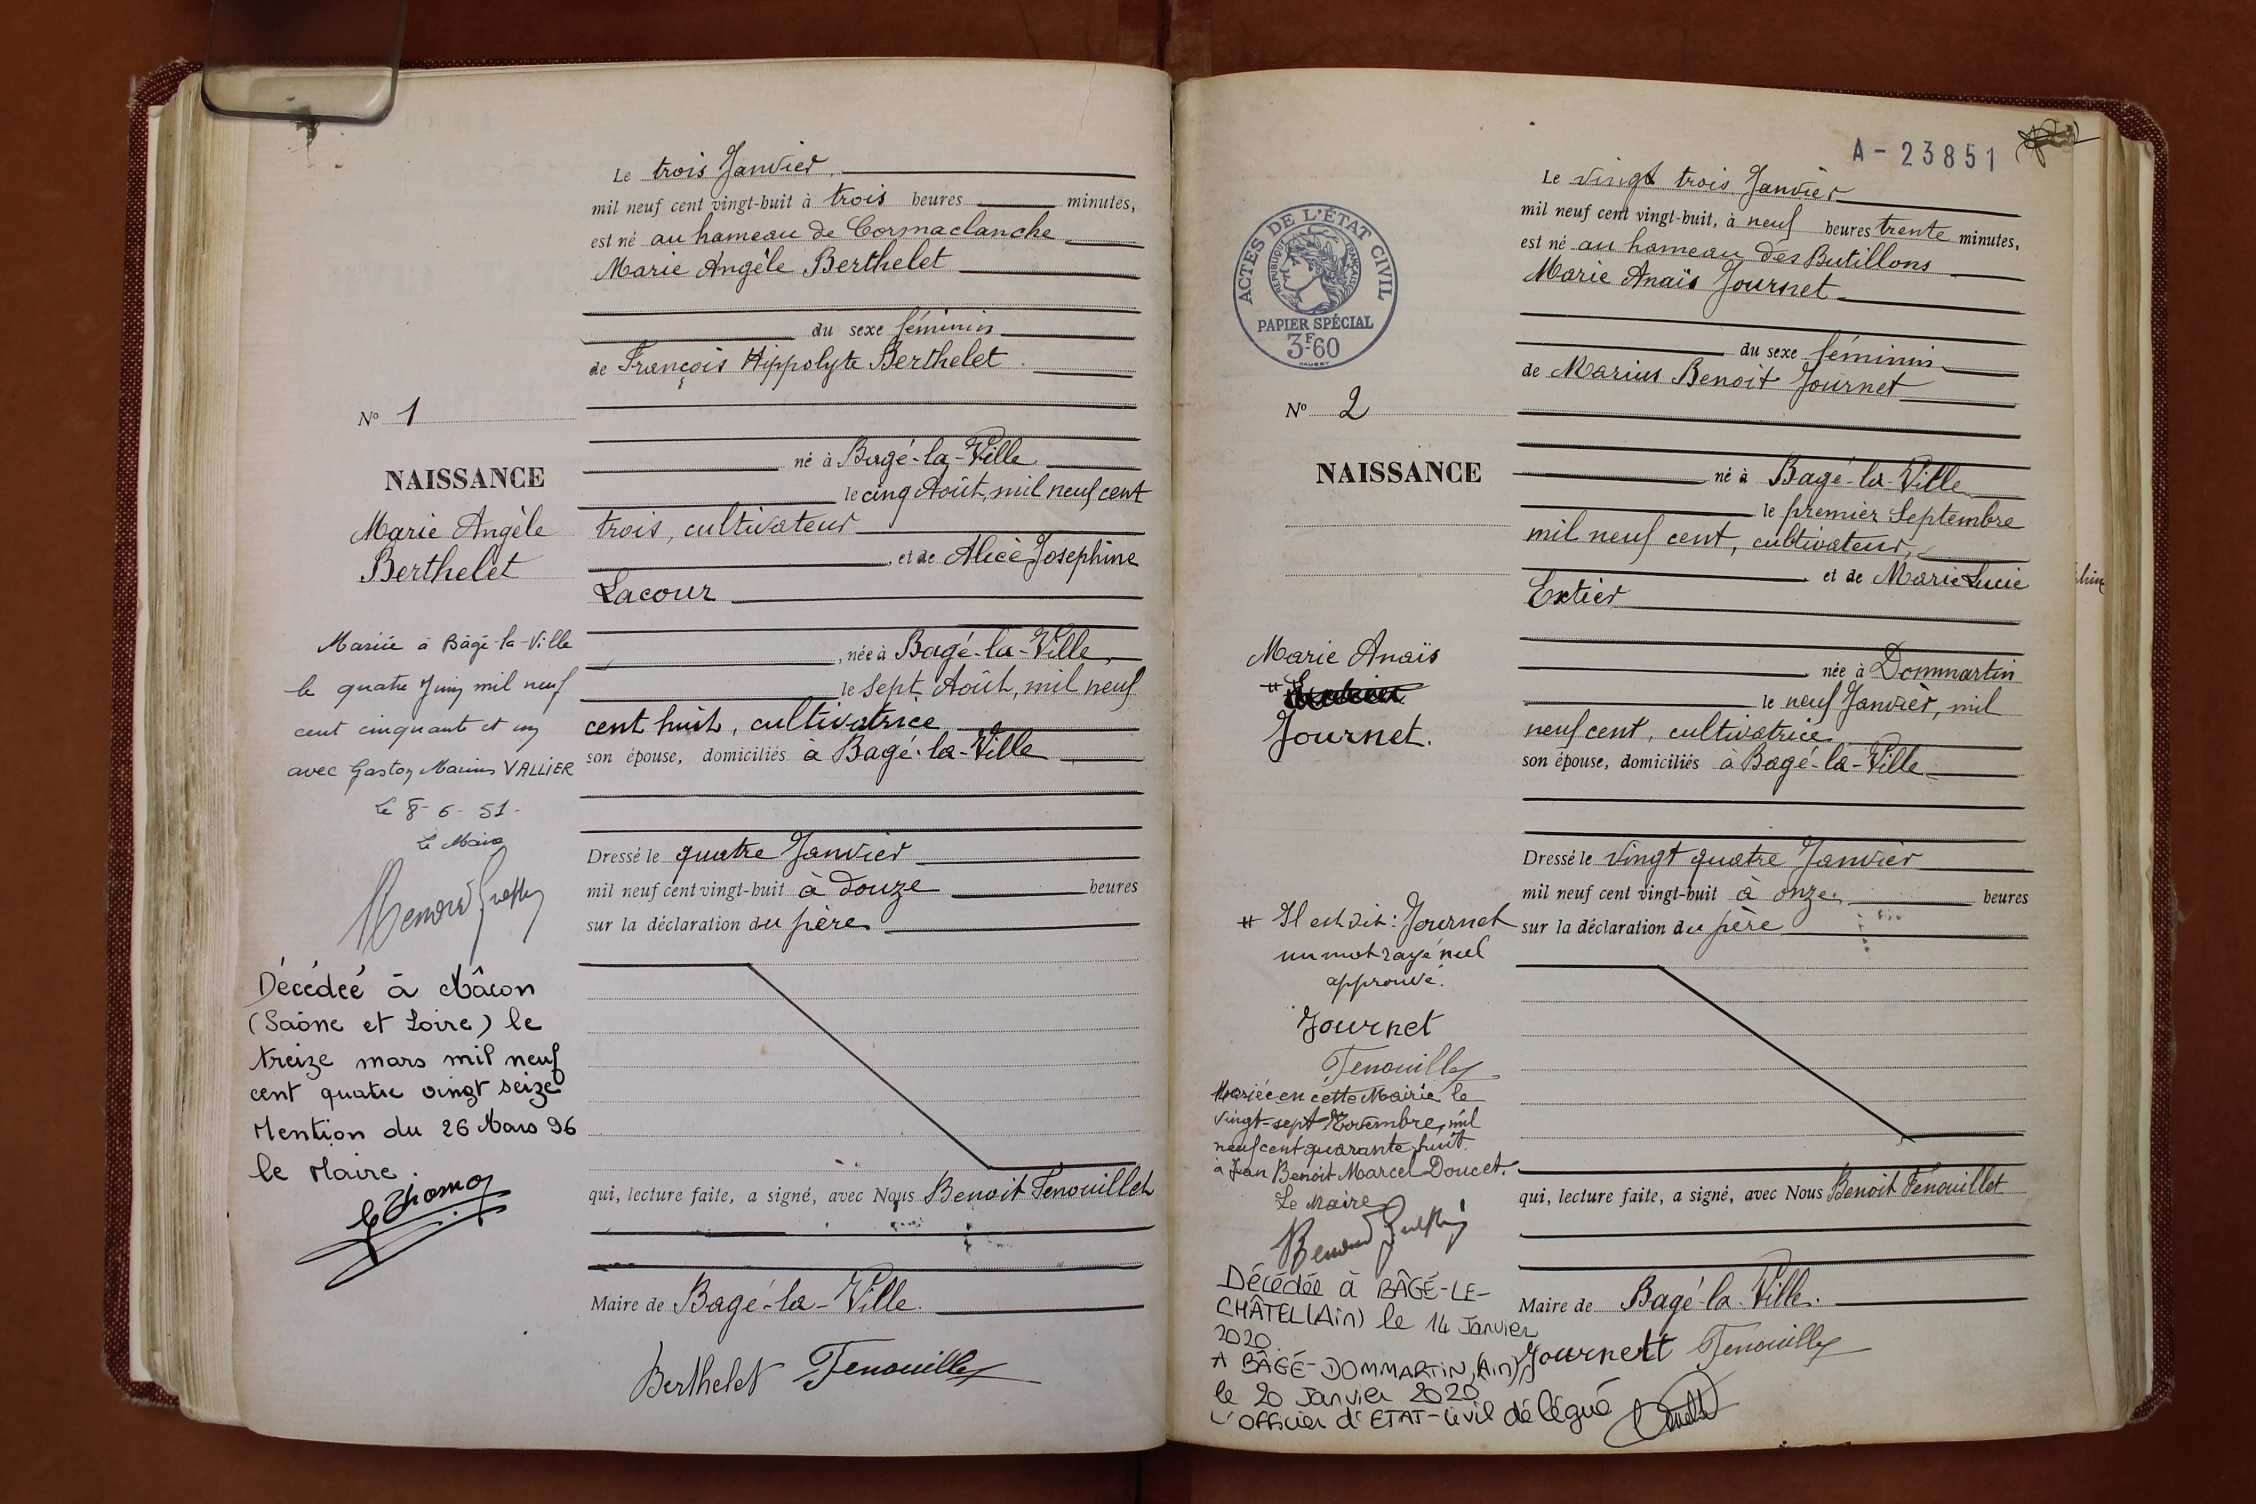 Le trois Janvier
mil neuf cent vingt-huit à trois heures minutes,
est né au hameau de Cormaclanche
Marie Angèle Berthelet
du sexe féminin
de François Hippolyte Berthelet
né à Bagé-la-Ville
le cinq Août, mil neuf cent
trois, cultivateur
et de Alice Josephine
Lacour
, née à Bagé-la-Ville,
le sept Août, mil neuf
cent huit, cultivatrice
son épouse, domiciliés à Bagé-la-Ville
Dressé le quatre Janvier
mil neuf cent vingt-huit à douze heures
sur la déclaration du père
qui, lecture faite, a signé, avec Nous Benoit Fenouillet
Maire de Bagé-la-Ville.
Berthelet Fenouillet
No 1
NAISSANCE
Marie Angèle
Berthelet
Mariée à Bâgé-la-Ville
le quatre Juin mil neuf
cent cinquante et un
avec Gaston Marius VALLIER
Le 8-6-51-
Le Maire
Décédée à Mâcon
(Saône et Loire) le
treize mars mil neuf
cent quatre vingt seize
Mention du 26 Mars 96
le Maire
A-23851
ACTES DE L'ÉTAT CIVIL
RÉPUBLIQUE FRANÇAISE
PAPIER SPÉCIAL
3F60
Le vingt trois Janvier
mil neuf cent vingt-huit, à neuf heures trente minutes,
est né au hameau des Butillons
Marie Anaïs Journet
du sexe féminin
de Marius Benoit Journet
né à Bagé-la-Ville
le premier Septembre
mil neuf cent, cultivateur,
et de Marie Lucie
Extier
née à Dommartin
le neuf Janvier, mil
neuf cent, cultivatrice
son épouse, domiciliés à Bagé-la-Ville
Dressé le vingt quatre Janvier
mil neuf cent vingt-huit à onze heures
sur la déclaration du père
qui, lecture faite, a signé, avec Nous Benoit Fenouillet
Maire de Bagé-la-Ville.
Journet Fenouillet
No 2
NAISSANCE
Marie Anaïs
Journet.
# Il est dit: Journet
un mot rayé nul
approuvé.
Journet
Fenouillet
Mariée en cette Mairie le
vingt-sept Novembre, mil
neuf cent quarante huit
à Jean Benoit Marcel Doucet.
Le Maire
Décédée à BÂGÉ-LE-
CHÂTEL (Ain) le 14 Janvier
2020.
A BÂGÉ-DOMMARTIN, (Ain),
le 20 Janvier 2020
L'Officier d'ETAT-Civil délégué